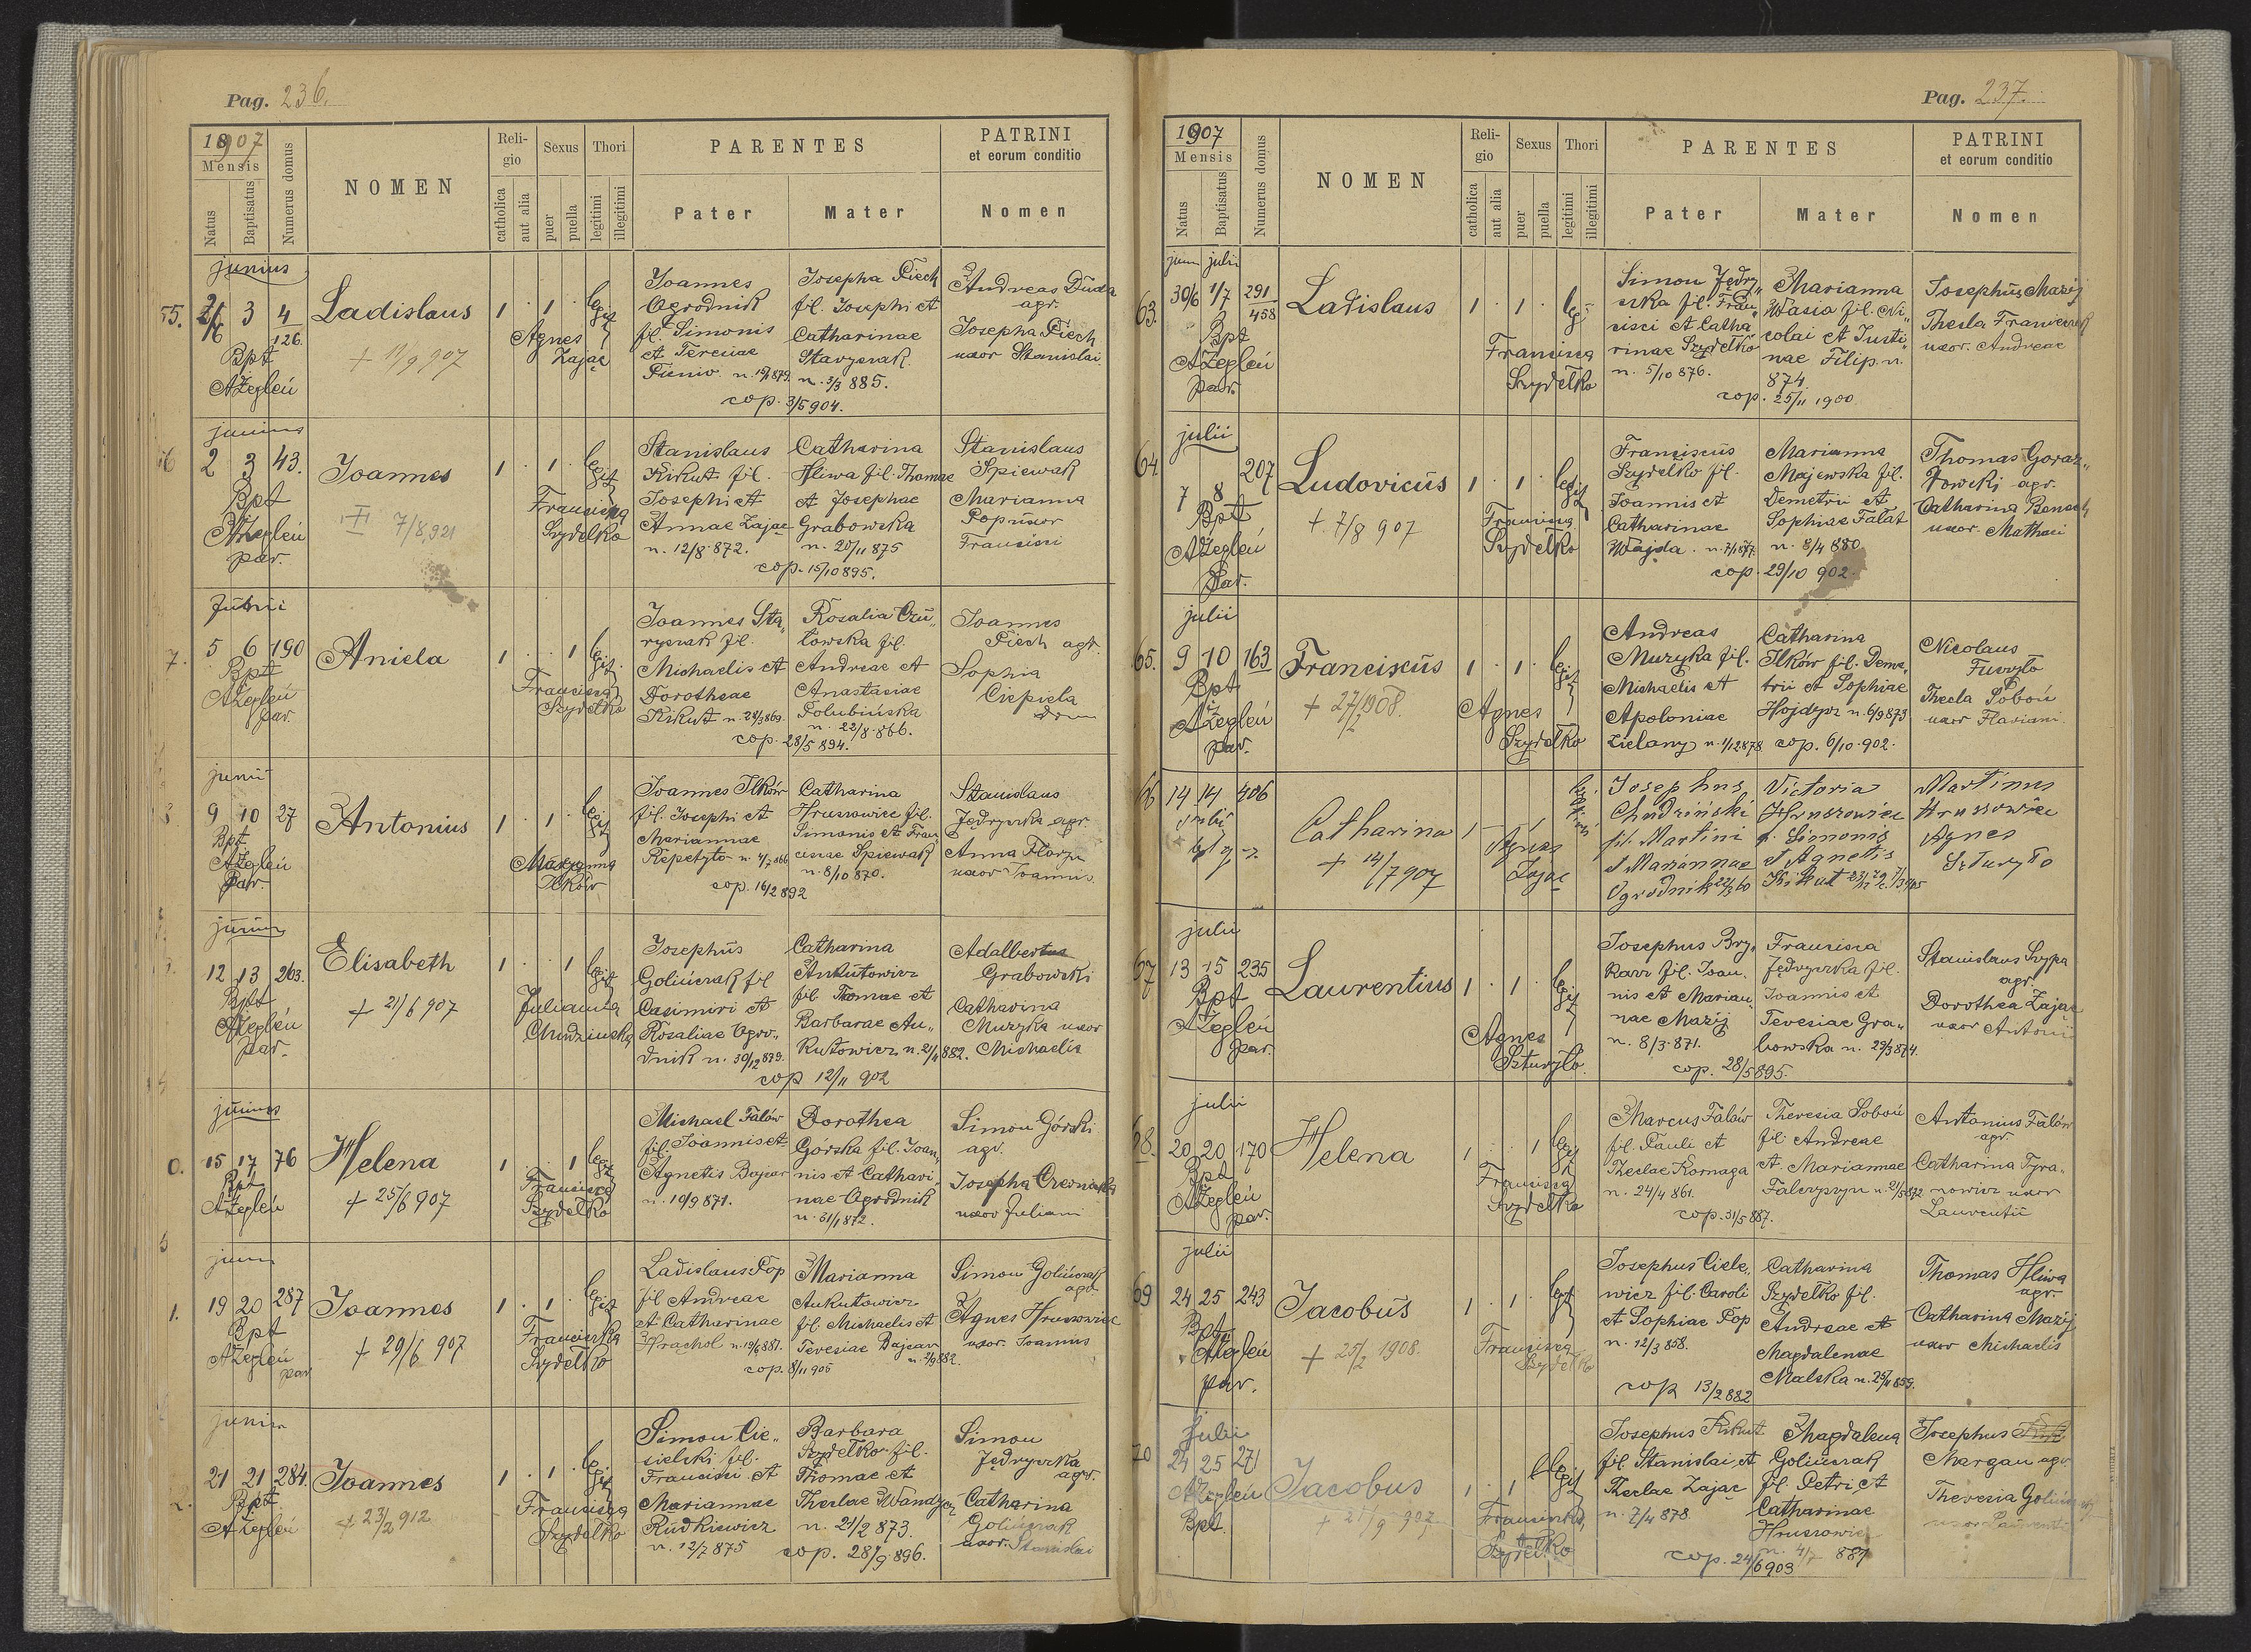 Pag. 236.
1907
Mensis
Natus
Baptisatus
Numerus domus
NOMEN
Religio
catholica
aut alia
Sexus
puer
puella
Thori
legitimi
illegitimi
PARENTES
Pater
Mater
PATRINI
et eorum conditio
Nomen
junius
55. 2/6 3 4/126
Bpt
AŻegleń
Ladislaus
+ 11/9 907
1 . 1 . legit
Agnes
Zając
Joannes
Ogrodnik
fil. Simonis
et Teresiae
Pieniо n. 879.
Josepha Piech
fil. Josephi et
Catharinae
Starysrak
n. 3/3 885.
cop. 3/5 904.
Andreas Duda
agr.
Josepha Piech
uxor Stanislai
junius
2 3 43.
Bpt
AŻegleń
par.
Joannes
+ 7/8, 921
1 . 1 . legit
Francisca
Szydełko
Stanislaus
Kikut fil.
Josephi et
Annae Zając
n. 12/8 872.
Catharina
Hliwa fil. Thomae
et Josephae
Grabowska
n. 20/11 875
cop. 15/10 895.
Stanislaus
Spiewak
Marianna
Pop uxor
Francisci
Junii
7. 5 6 190
Bpt
AŻegleń
par.
Aniela
1 . . 1 legit.
Francisca
Szydełko
Joannes Sta„
rysrak fil.
Michaelis et
Dorotheae
Kikut n. 869.
Rosalia
towska fil.
Andreae et
Anastasiae
Polubińska
n. 22/8 866.
cop. 28/5 894.
Joannes
Piech agr.
Sophia
Ciepiela
junii
9 10 27
Bpt
AŻegleń
par.
Antonius
1 . 1 . legit
Marianna
Ilków
Joannes Ilków
fil. Josephi et
Mariannae
Repetyło n. 4/7 866
Catharina
Hrusowiec fil.
Simonis et Fran
ciscae Spiewak
n. 8/10 870.
cop. 16/2 892
Stanislaus
Jędryczka agr.
Anna
uxor Joannis.
junius
12 13 263.
Bpt
AŻegleń
par.
Elisabeth
+ 21/6 907
1 . . 1 legit
Julianna
Chudzinska
Josephus
Golińczak fil
Casimiri et
Rosaliae Ogro„
dnik n. 30/12 879.
Catharina
Ankutowicz
fil. Thomae et
Barbarae An„
kutowicz n. 882.
cop 12/11 902
Adalbertus
Grabowski
Catharina
Muzyka uxor
Michaelis
junius
0. 15 17 76
Bpt
AŻegleń
Helena
+ 25/6 907
1 . . 1 legit
Francisca
Szydełko
Michael Falów
fil. Joannis et
Agnetis Bajcar
n. 10/9 871.
Dorothea
Górska fil. Joan„
nis et Cathari„
nae Ogrodnik
n. 31/1 872.
Simon Górski
agr.
Josepha
uxor Juliani
junii
1. 19 20 287
Bpt
AŻegleń
par
Joannes
+ 29/6 907
1 . 1 . legit
Francisca
Szydełko
Ladislaus Pop
fil Andreae
et Catharinae
Hrachol n. 19/6 881.
Marianna
Ankutowicz
fil. Michaelis et
Teresiae Bajcar
n. 2/9 882.
cop. 8/11 905
Simon Golińczak
agr.
Agnes Hrusowiec
uxor. Joannis
junii
2. 21 21 284.
Bpt
AŻegleń
Joannes
+ 23/2 912
1 . 1 . legit
Francisca
Szydełko
Simon Cie„
sielski fil.
Francisci et
Mariannae
Rudkiewicz
n. 12/7 875
Barbara
Szydełko fil.
Thomae et
Theclae
n. 21/2 873.
cop. 28/9 896.
Simon
Jędryczka
agr.
Catharina
Golińczak
uxor. Stanislai
Pag. 237.
1907
Mensis
Natus
Baptisatus
Numerus domus
NOMEN
Religio
catholica
aut alia
Sexus
puer
puella
Thori
legitimi
illegitimi
PARENTES
Pater
Mater
PATRINI
et eorum conditio
Nomen
junii julii
63. 30/6 1/7 291/458
Bpt
AŻegleń
par.
Ladislaus
1 . 1 . leg
Francisca
Szydełko
Simon Jędry„
czka fil. Fran„
cisci et Catha„
rinae Szydełko
n. 5/10 876.
Marianna
Wasia fil. Ni„
colai et Justi„
nae Filip. n.
874.
cop. 25/11 1900
Josephus Mazij
Thecla Franczak
uxor. Andreae
julii
64. 7 8 207
Bpt
AŻegleń
Par.
Ludovicus
+ 7/8 907
1 . 1 . legit
Francisca
Szydełko
Franciscus
Szydełko fil.
Joannis et
Catharinae
Wajda. n. 7/1 877.
Marianna
Majewska fil.
Demetrii et
Sophiae Fałat
n. 8/4 880
cop. 29/10 902.
Thomas Goraz„
dowski agr.
Catharina
uxor. Mathaei
julii
65. 9 10 163
Bpt
AŻegleń
par.
Franciscus
+ 27/2 1908.
1 . 1 . legit
Agnes
Szydełko
Andreas
Muzyka fil.
Michaelis et
Apoloniae
Zielany n. 1/12 878
Catharina
Ilków fil. Deme„
trii et Sophiae
Hojdysz n. 6/9 879
cop. 6/10 902.
Nicolaus
Thecla Soboń
uxor Flaviani.
66 14 14 406
Catharina
+ 14/7 907
1
Agnes
Zając
Josephus
Chudziński
fil. Martini
et Mariannae
Ogrodnik 22/3 60
Victoria
Hruszowiec
f. Simonis
et Agnetis
Kikut
Martinus
Hrusowiec
Agnes
Szturyło
julii
67 13 15 235
Bpt
AŻegleń
par.
Laurentius
1 . 1 . legit
Agnes
Szturyło.
Josephus Bry„
karz fil. Joan„
nis et Marian„
nae Mazij
n. 8/3 871.
Francisca
Jędryczka fil.
Joannis et
Teresiae Gra„
bowska n. 23/3 874.
cop. 28/5 895.
Stanislaus Szypa
agr.
Dorothea Zając
uxor Antonii
julii
68. 20 20 170
Bpt
AŻegleń
par.
Helena
1 . . 1 legit
Francisca
Szydełko
Marcus Falów
fil. Pauli et
Theclae Kornaga
n. 24/4 861.
Theresia Soboń
fil. Andreae
et. Mariannae
n. 21/5 872
cop. 31/5 887.
Antonius Falów
agr.
Catharina Tyra„
nowicz uxor
Laurentii
julii
69 24 25 243
Bpt
AŻegleń
par.
Jacobus
+ 25/2 1908.
1 . 1 . legit
Francisca
Szydełko
Josephus Ciele„
wicz fil. Caroli
et Sophiae Pop
n. 12/3 858.
Catharina
Szydełko fil.
Andreae et
Magdalenae
Malska n. 859.
cop 13/2 882
Thomas Hliwa
agr.
Catharina Mazij
uxor Michaelis
julii
70 24 25 271
AŻegleń
Bpt.
Jacobus
+ 21/9 907
1 . 1 legit
Francisca
Szydełko
Josephus Kikut
fil Stanislai et
Theclae Zając
n. 7/4 878.
Magdalena
Golińczak
fil. Petri et
Catharinae
Hrusowiec
n. 4/7 881
cop. 24/6 903
Josephus
Margan agr
Theresia